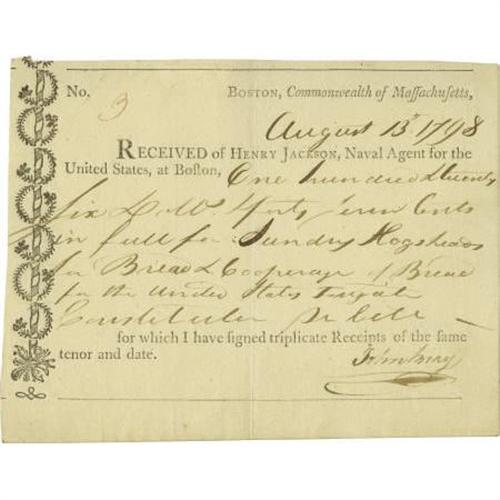 No. 3 BOSTON, Commonwealth of Maſſachuſetts,
August 13t 1798
RECEIVED of HENRY JACKSON, Naval Agent for the
United States, at Boſton, One hundred & twenty
Six Forty Seven Cents
in full for Sundry Hogsheads
for Bread & Cooperage of Bread
for the United States Frigate
Constitution
for which I have signed triplicate Receipts of the same
tenor and date. John